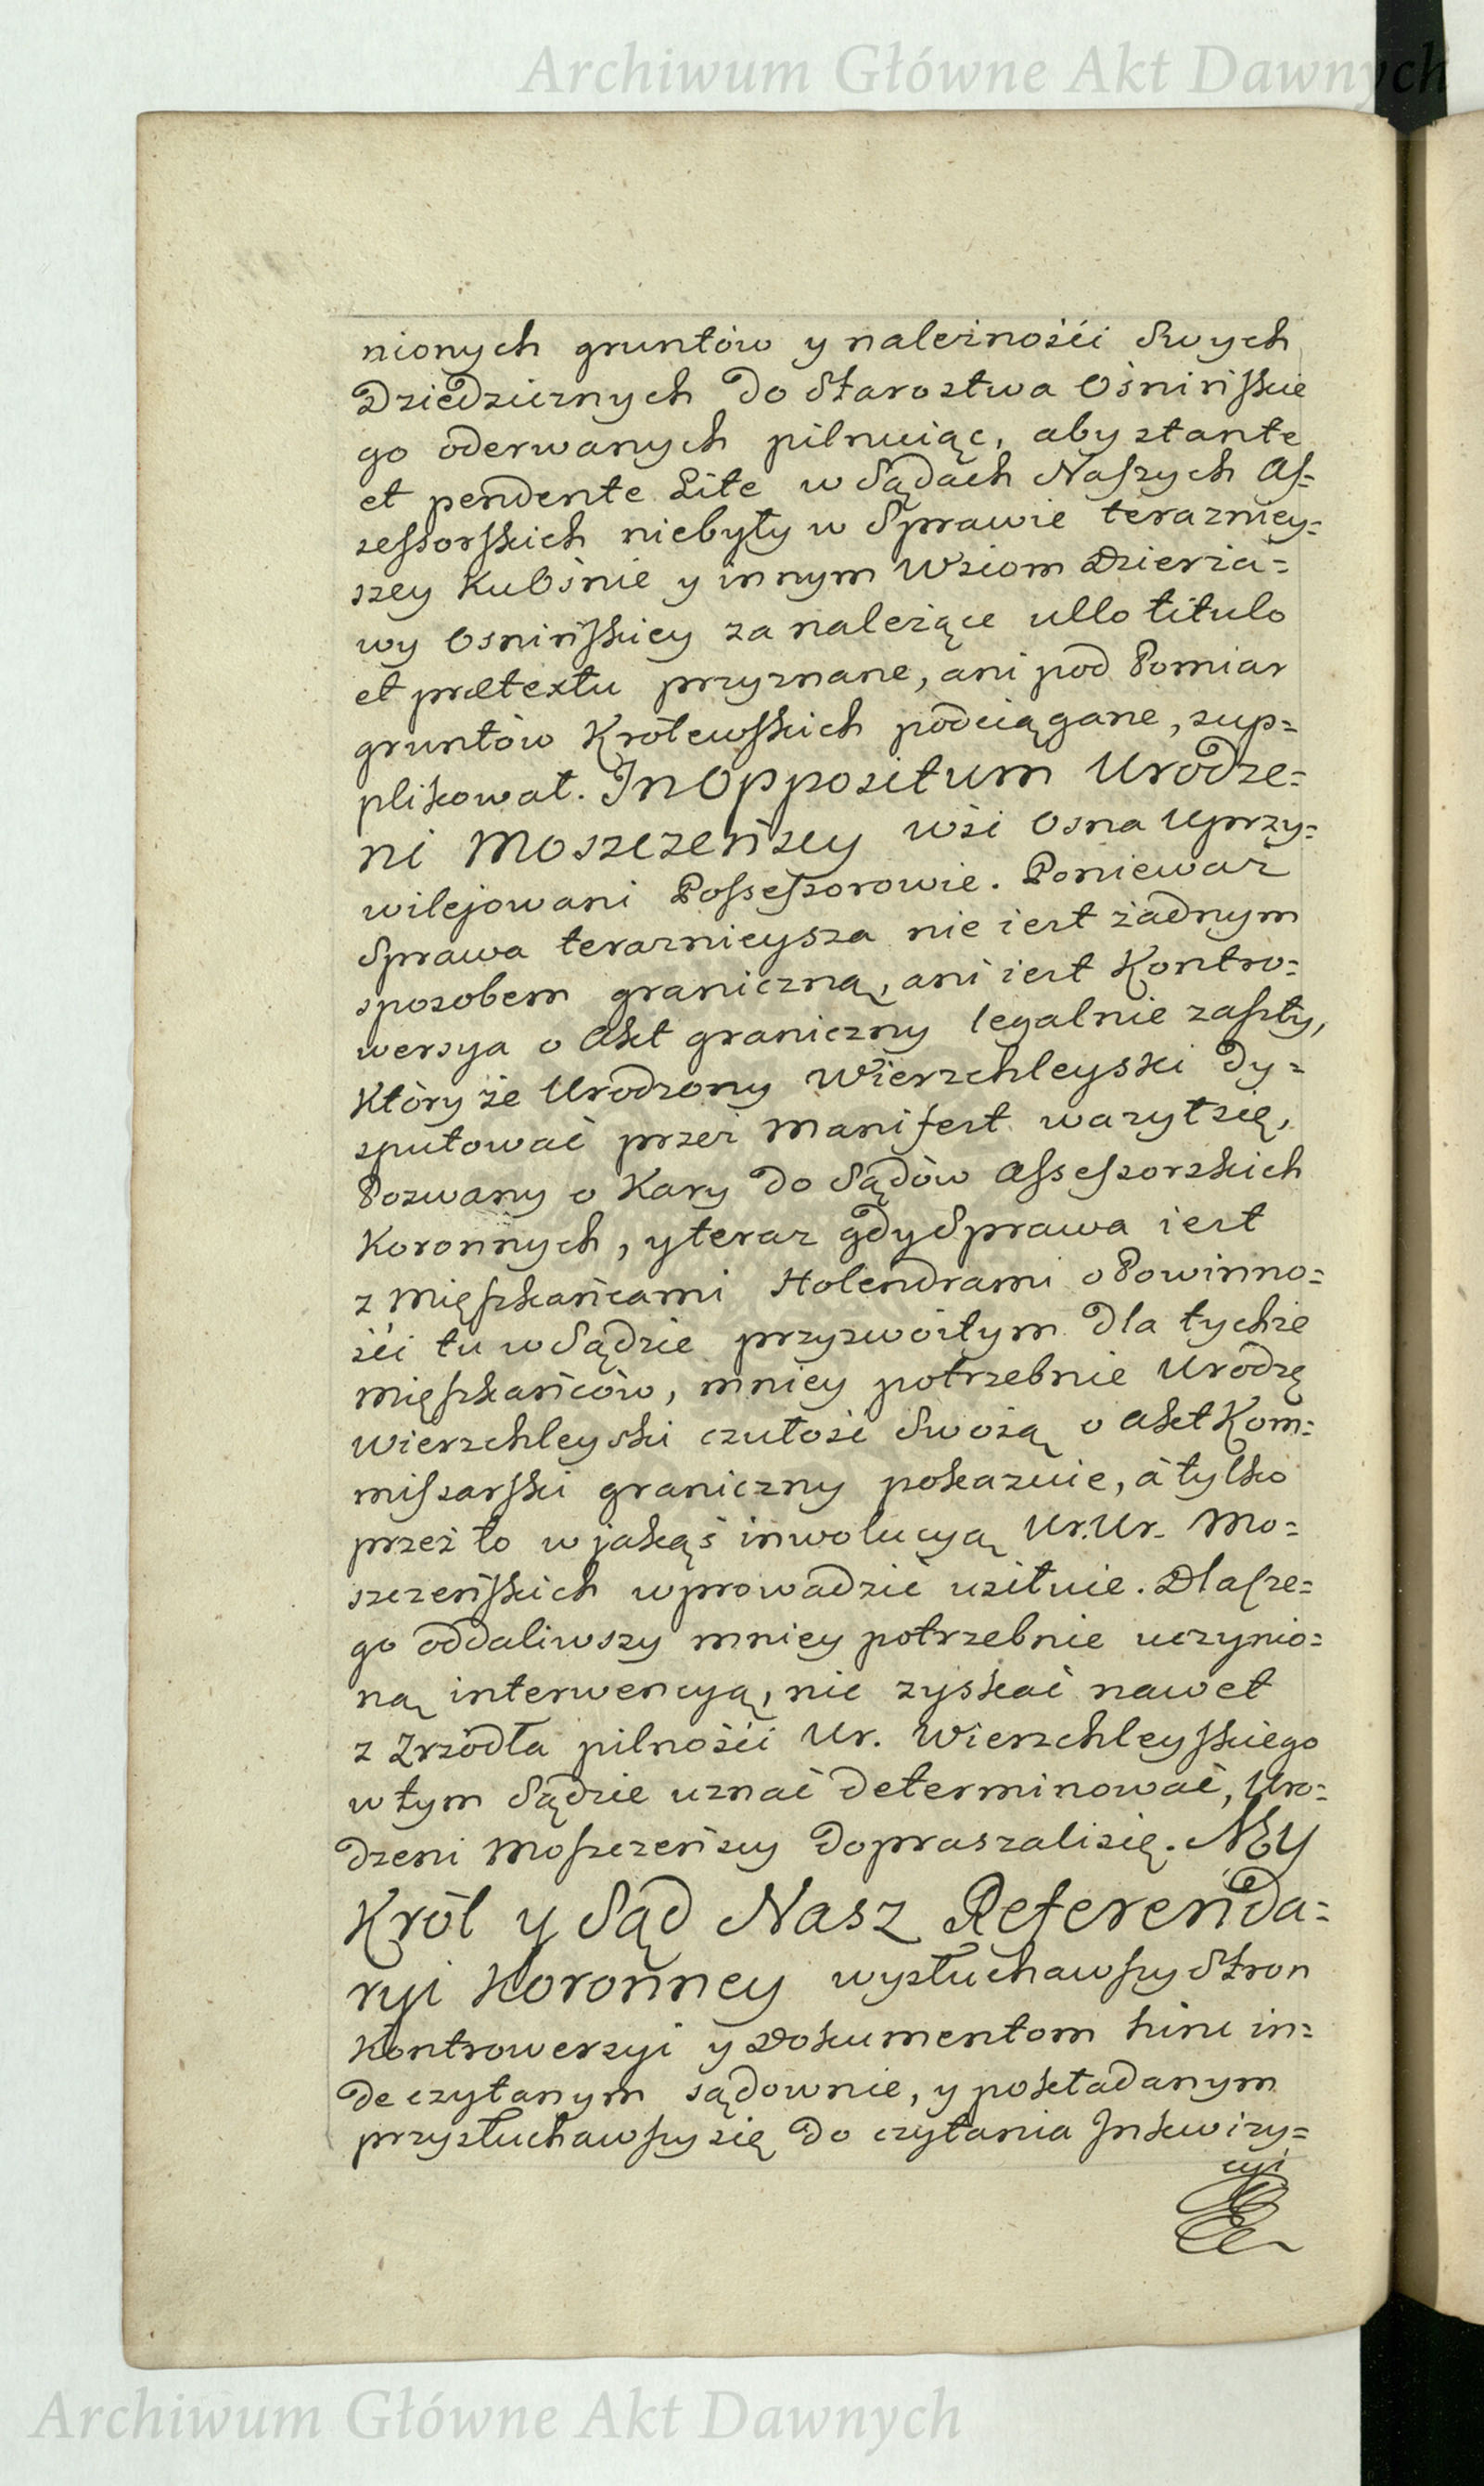 Archiwum Główne Akt Dawnych
nionych gruntów y należnośći Swych
Dziedzicznych do Starostwa Ośnińskie
go oderwanych pilnuiąc, aby stante
et pendente Lite w Sądach Naszych As=
sessorskich niebyły w Sprawie terazniey=
szey Ku Ośnie y innym Wsiom Dzierża=
wy Osnińskiey za należące ullo titulo
et prætextu przyznane, ani pod Pomiar
gruntów Królewskich podciągane, sup=
plikował. In Oppositum Urodze=
ni Moszczeńscy wśi Osna Uprzy=
wilejowani Possessorowie. Ponieważ
Sprawa teraznieysza nie iest żadnym
sposobem graniczną, ani iest Kontro=
wersya o Akt graniczny legalnie zaszły,
Który że Urodzony Wierzchleyski dy=
sputować przez Manifest ważył się,
Pozwany o Kary do Sądów Assessorskich
Koronnych, y teraz gdy Sprawa iest
z Mięszkańcami Holendrami o Powinno=
śći tu w Sądzie przyzwoitym dla tychże
Mięszkańców, mniey potrzebnie Urodzę
Wierzchleyski czułość Swoią o Akt Kom=
missarski graniczny pokazuie, á tylko
przez to w jakąś inwolucyą Ur. Ur. Mo=
szczeńskich wprowadzić usiłuie. Dla cze=
go oddaliwszy mniey potrzebnie uczynio=
ną interwencyą, nic zyskać nawet
z Zrzódła pilnośći Ur. Wierzchleyskiego
w tym Sądzie uznać determinować, Uro=
dzeni Moszczeńscy dopraszali się. My
Król y Sąd Nasz Referenda=
ryi Koronney wysłuchawszy Stron
Kontrowersyi y Dokumentom hinc in=
de czytanym sądownie, y pokładanym
przysłuchawszy się do czytania Inkwizy=
cyi
Archiwum Główne Akt Dawnych